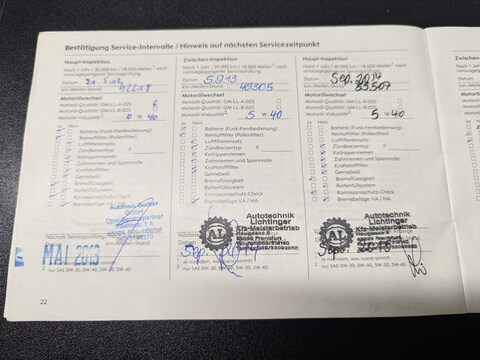 Bestätigung Service-Intervalle / Hinweis auf nächsten Servicezeitpunkt
Haupt-Inspektion
Nach 1 Jahr / 30.000 km / 18.000 Meilen
vorausgegangener Serviceprüfung
Datum
km-/Meilen-Stand
Motorölwechsel
Motoröl-Qualität: GM-LL-A-025
Motoröl-Qualität: GM-LL-B-025
Motoröl-Viskosität 0 W 40
Ja Nein
Batterie (Funk-Fernbedienung)
Reinluftfilter (Pollenfilter)
Luftfiltereinsatz
Zündkerzen
Keilrippenriemen
Zahnriemen und Spannrolle
Kraftstofffilter
Getriebeöl
Bremsflüssigkeit
Reifenfüllsystem
Korrosionsschutz-Check
Bremsbeläge VA / HA
Nächste Serviceprüfung
MAI 2013
nur SAE 5W-30, 5W-40, 0W-30, 0W-40
22
Zwischen-Inspektion
Nach 1 Jahr / 30.000 km / 18.000 Meilen
vorausgegangener Serviceprüfung
Datum 5.9.13
km-/Meilen-Stand 49305
Motorölwechsel
Motoröl-Qualität: GM-LL-A-025
Motoröl-Qualität: GM-LL-B-025
Motoröl-Viskosität 5 W 40
Ja Nein
Batterie (Funk-Fernbedienung)
Reinluftfilter (Pollenfilter)
Luftfiltereinsatz
Zündkerzen
Keilrippenriemen
Zahnriemen und Spannrolle
Kraftstofffilter
Getriebeöl
Bremsflüssigkeit
Reifenfüllsystem
Korrosionsschutz-Check
Bremsbeläge VA / HA
AL
Autotechnik
Lichtinger
Kfz-Meisterbetrieb
Sep. 2014
Haupt-Inspektion
Nach 1 Jahr / 30.000 km / 18.000 Meilen
vorausgegangener Serviceprüfung
Datum Sep. 2014
km-/Meilen-Stand 55507
Motorölwechsel
Motoröl-Qualität: GM-LL-A-025
Motoröl-Qualität: GM-LL-B-025
Motoröl-Viskosität 5 W 40
Ja Nein
Batterie (Funk-Fernbedienung)
Reinluftfilter (Pollenfilter)
Luftfiltereinsatz
Zündkerzen
Keilrippenriemen
Zahnriemen und Spannrolle
Kraftstofffilter
Getriebeöl
Bremsflüssigkeit
Reifenfüllsystem
Korrosionsschutz-Check
Bremsbeläge VA / HA
AL
Autotechnik
Lichtinger
Kfz-Meisterbetrieb